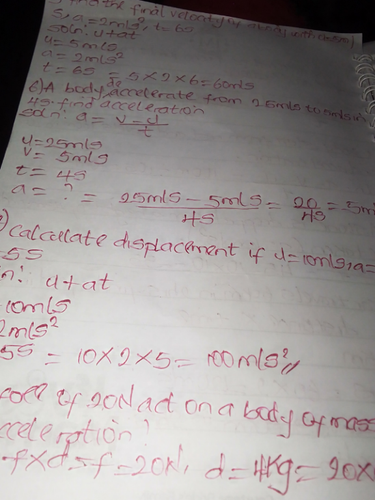 final velocity of
S, a = 2m/s², t = 6s
Soln: u+at
u = 5m/s
a = 2m/s²
t = 6s = 5 × 2 × 6 = 60m/s
6) A body deaccelerate from 25m/s to
4s. find acceleration
Soln: a = v-u/t
u = 25m/s
v = 5m/s
t = 4s
a = ? = 25m/s - 5m/s/4s = 20/4s = 5m
) Calculate displacement if u = 10m/s, a =
5s
n: u + at
10m/s
2m/s²
5s = 10 × 2 × 5 = 100m/s²//
of 20N act on a body of mass
cceleration?
f × d = f = 20N, d = 4kg = 20 ×